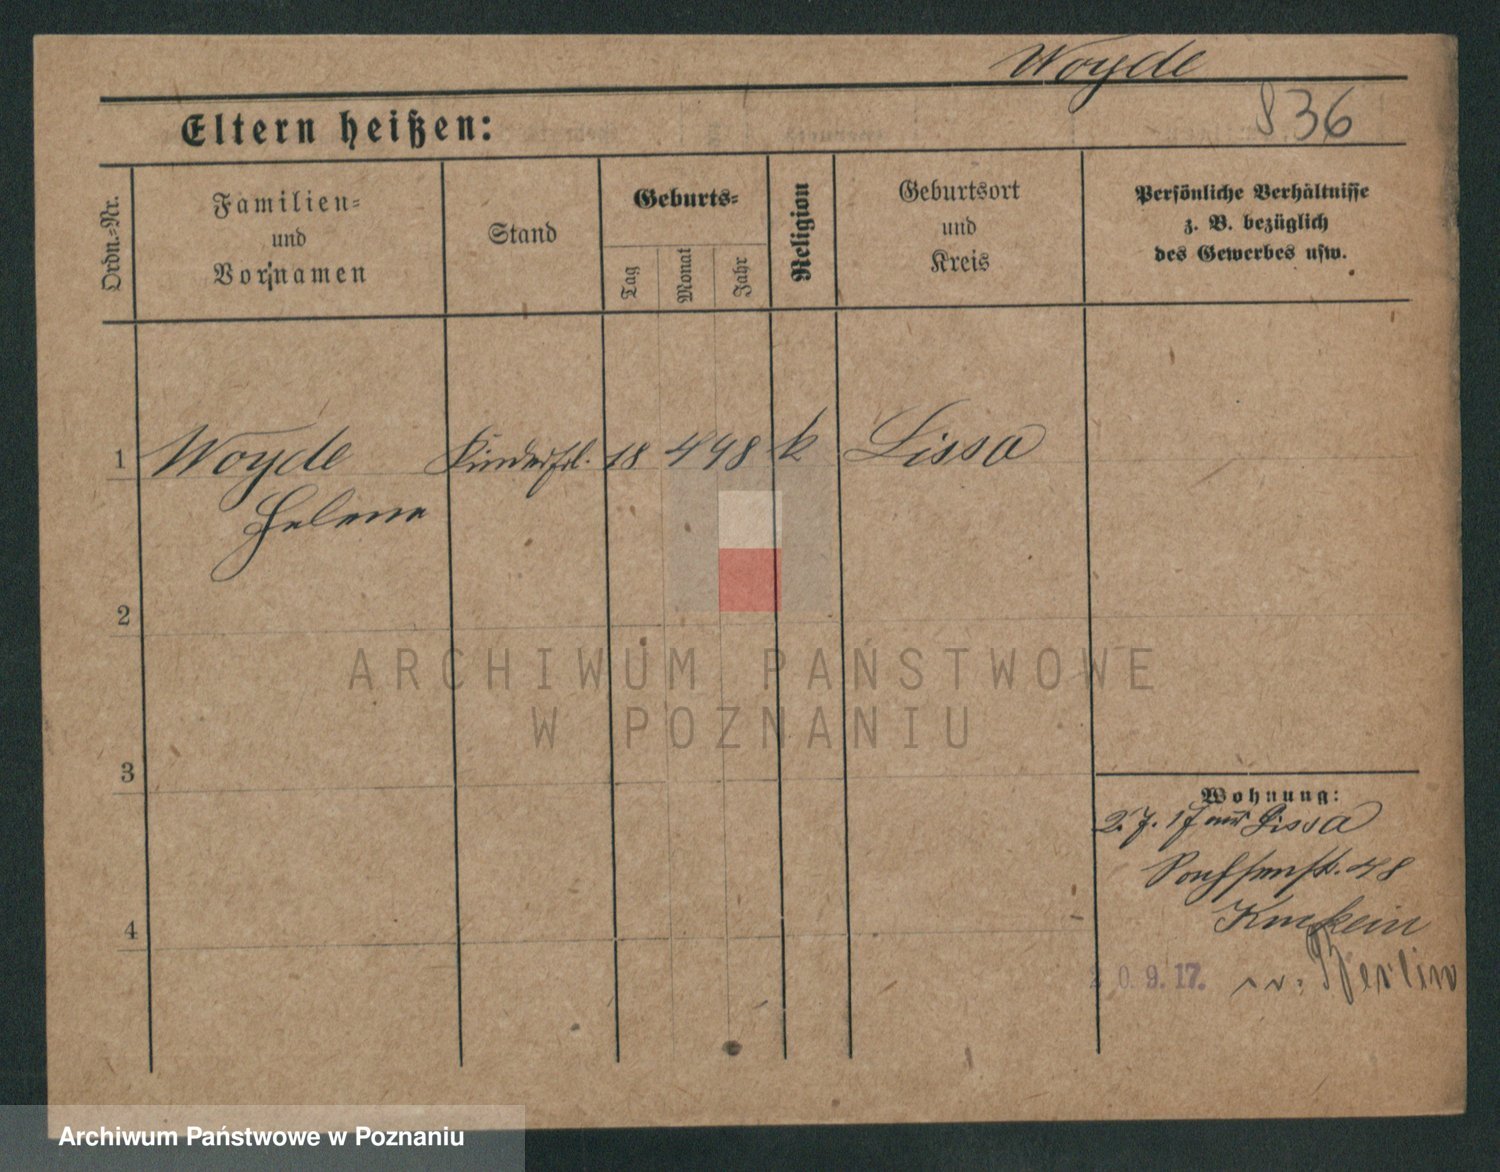 Woyde
836
Eltern heißen:
Ordn.-Nr.
Familien-
und
Vornamen
Stand
Geburts-
Tag
Monat
Jahr
Religion
Geburtsort
und
Kreis
Persönliche Verhältnisse
z. B. bezüglich
des Gewerbes usw.
1 Woyde Kinderfrl. 18 4 98 k Lissa
Helene
2
3
4
Wohnung:
2. 7. 17 aus Lissa
48
20.9.17. n. Berlin
ARCHIWUM PAŃSTWOWE
W POZNANIU
Archiwum Państwowe w Poznaniu